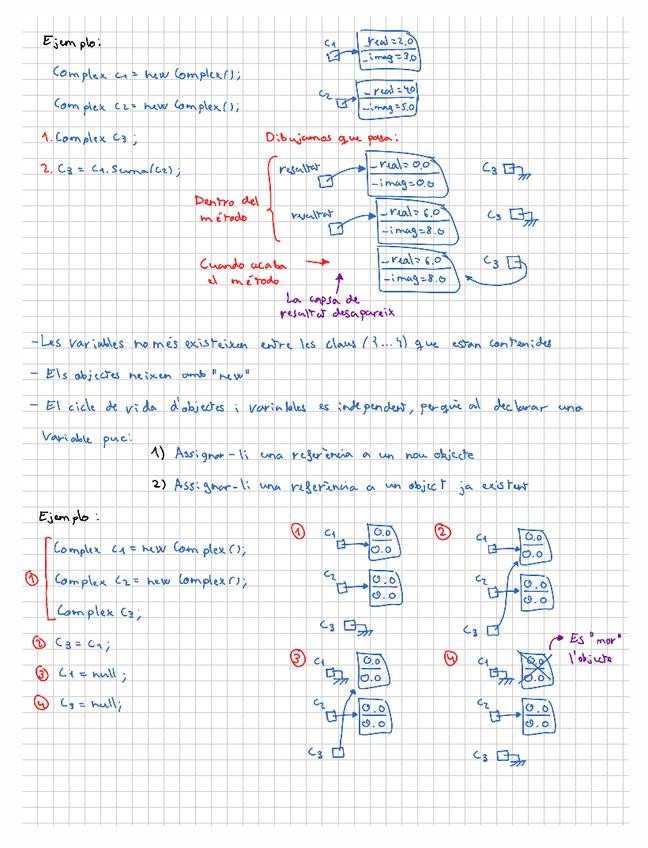 Ejemplo:
C1
_real=2.0
-imag=3.0
Complex C1 = new Complex();
Complex C2 = new Complex();
C2
-real=4.0
-imag=5.0
1. Complex C3;
Dibujamos que pasa:
2. C3 = C1.Suma(C2);
resultat
-real=0.0
-imag=0.0
C3
Dentro del
método
resultat
-real=6.0
-imag=8.0
C3
Cuando acaba
el método
-real=6.0
-imag=8.0
C3
La capsa de
resultat desapareix
- Les variables només existeixen entre les claus ({...}) que estan contenides
- Els objectes neixen amb "new"
- El cicle de vida d'objectes i variables es independent, perquè al declarar una
variable puc:
1) Assignar-li una referència a un nou objecte
2) Assignar-li una referència a un object ja existent
Ejemplo:
1
Complex C1 = new Complex();
Complex C2 = new Complex();
Complex C3;
2 C3 = C1;
3 C1 = null;
4 C3 = null;
1
C1
0.0
0.0
C2
0.0
0.0
C3
2
C1
0.0
0.0
C2
0.0
0.0
C3
3
C1
0.0
0.0
C2
0.0
0.0
C3
4
C1
0.0
0.0
Es "mor"
l'objecte
C2
0.0
0.0
C3